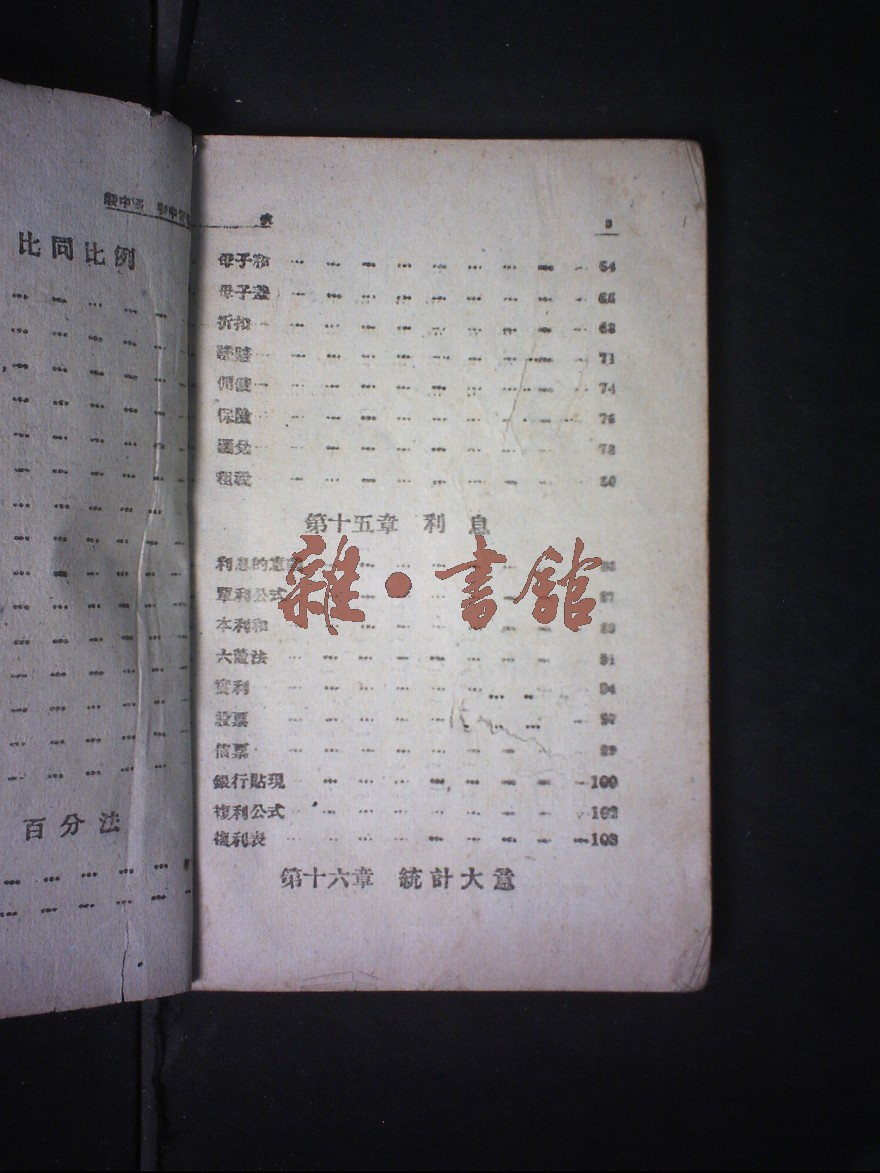 比同比例
百分法
3
母子和 … … … … … … … … … 64
母子差 … … … … … … … … … 66
折扣 … … … … … … … … … 68
… … … … … … … … … 71
… … … … … … … … … 74
保險 … … … … … … … … … 76
匯兌 … … … … … … … … … 78
租稅 … … … … … … … … … 80
第十五章 利息
利息的意義 … … … …
單利公式 … … … … 87
本利和 … … … … 89
… … … … … … … … … 91
實利 … … … … … … … … 94
股票 … … … … … … … … 97
債票 … … … … … … … … 99
銀行貼現 … … … … … … … … 100
複利公式 … … … … … … … … 102
複利表 … … … … … … … … 103
第十六章 統計大意
雜·書館